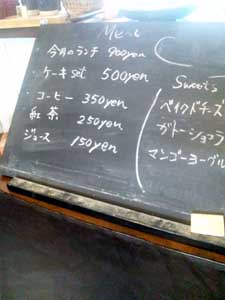 Menu
今月のランチ 900yen
・ケーキset 500yen
・コーヒー 350yen
紅茶 250yen
ジュース 150yen
Sweet's
ベイクドチーズ
ガトーショコラ
マンゴーヨーグル